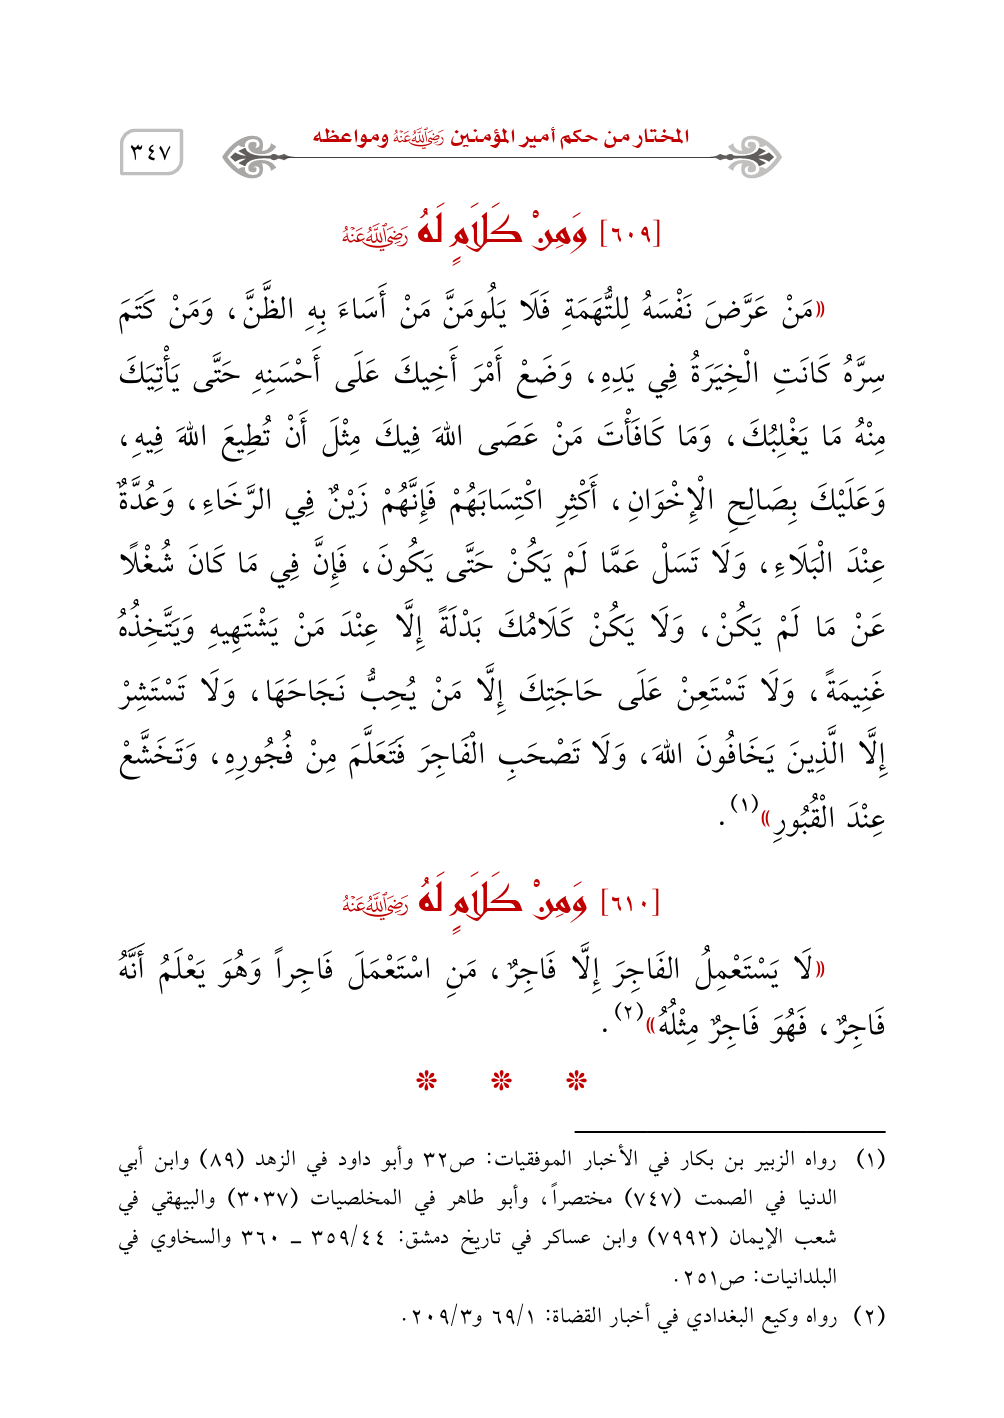 المختار من حكم أمير المؤمنين رَضِيَ اللَّهُ عَنْهُ ومواعظه
٣٤٧
[٦٠٩] وَمِنْ كَلَامٍ لَهُ رَضِيَ اللَّهُ عَنْهُ
«مَنْ عَرَّضَ نَفْسَهُ لِلتُّهَمَةِ فَلَا يَلُومَنَّ مَنْ أَسَاءَ بِهِ الظَّنَّ، وَمَنْ كَتَمَ
سِرَّهُ كَانَتِ الْخِيَرَةُ فِي يَدِهِ، وَضَعْ أَمْرَ أَخِيكَ عَلَى أَحْسَنِهِ حَتَّى يَأْتِيَكَ
مِنْهُ مَا يَغْلِبُكَ، وَمَا كَافَأْتَ مَنْ عَصَى اللهَ فِيكَ مِثْلَ أَنْ تُطِيعَ اللهَ فِيهِ،
وَعَلَيْكَ بِصَالِحِ الْإِخْوَانِ، أَكْثِرِ اكْتِسَابَهُمْ فَإِنَّهُمْ زَيْنٌ فِي الرَّخَاءِ، وَعُدَّةٌ
عِنْدَ الْبَلَاءِ، وَلَا تَسَلْ عَمَّا لَمْ يَكُنْ حَتَّى يَكُونَ، فَإِنَّ فِي مَا كَانَ شُغْلًا
عَنْ مَا لَمْ يَكُنْ، وَلَا يَكُنْ كَلَامُكَ بَدْلَةً إِلَّا عِنْدَ مَنْ يَشْتَهِيهِ وَيَتَّخِذُهُ
غَنِيمَةً، وَلَا تَسْتَعِنْ عَلَى حَاجَتِكَ إِلَّا مَنْ يُحِبُّ نَجَاحَهَا، وَلَا تَسْتَشِرْ
إِلَّا الَّذِينَ يَخَافُونَ اللهَ، وَلَا تَصْحَبِ الْفَاجِرَ فَتَعَلَّمَ مِنْ فُجُورِهِ، وَتَخَشَّعْ
عِنْدَ الْقُبُورِ»(١).
[٦١٠] وَمِنْ كَلَامٍ لَهُ رَضِيَ اللَّهُ عَنْهُ
«لَا يَسْتَعْمِلُ الفَاجِرَ إِلَّا فَاجِرٌ، مَنِ اسْتَعْمَلَ فَاجِراً وَهُوَ يَعْلَمُ أَنَّهُ
فَاجِرٌ، فَهُوَ فَاجِرٌ مِثْلُهُ»(٢).
(١) رواه الزبير بن بكار في الأخبار الموفقيات: ص٣٢ وأبو داود في الزهد (٨٩) وابن أبي
الدنيا في الصمت (٧٤٧) مختصراً، وأبو طاهر في المخلصيات (٣٠٣٧) والبيهقي في
شعب الإيمان (٧٩٩٢) وابن عساكر في تاريخ دمشق: ٣٥٩/٤٤ ـ ٣٦٠ والسخاوي في
البلدانيات: ص٢٥١.
(٢) رواه وكيع البغدادي في أخبار القضاة: ٦٩/١ و٢٠٩/٣.